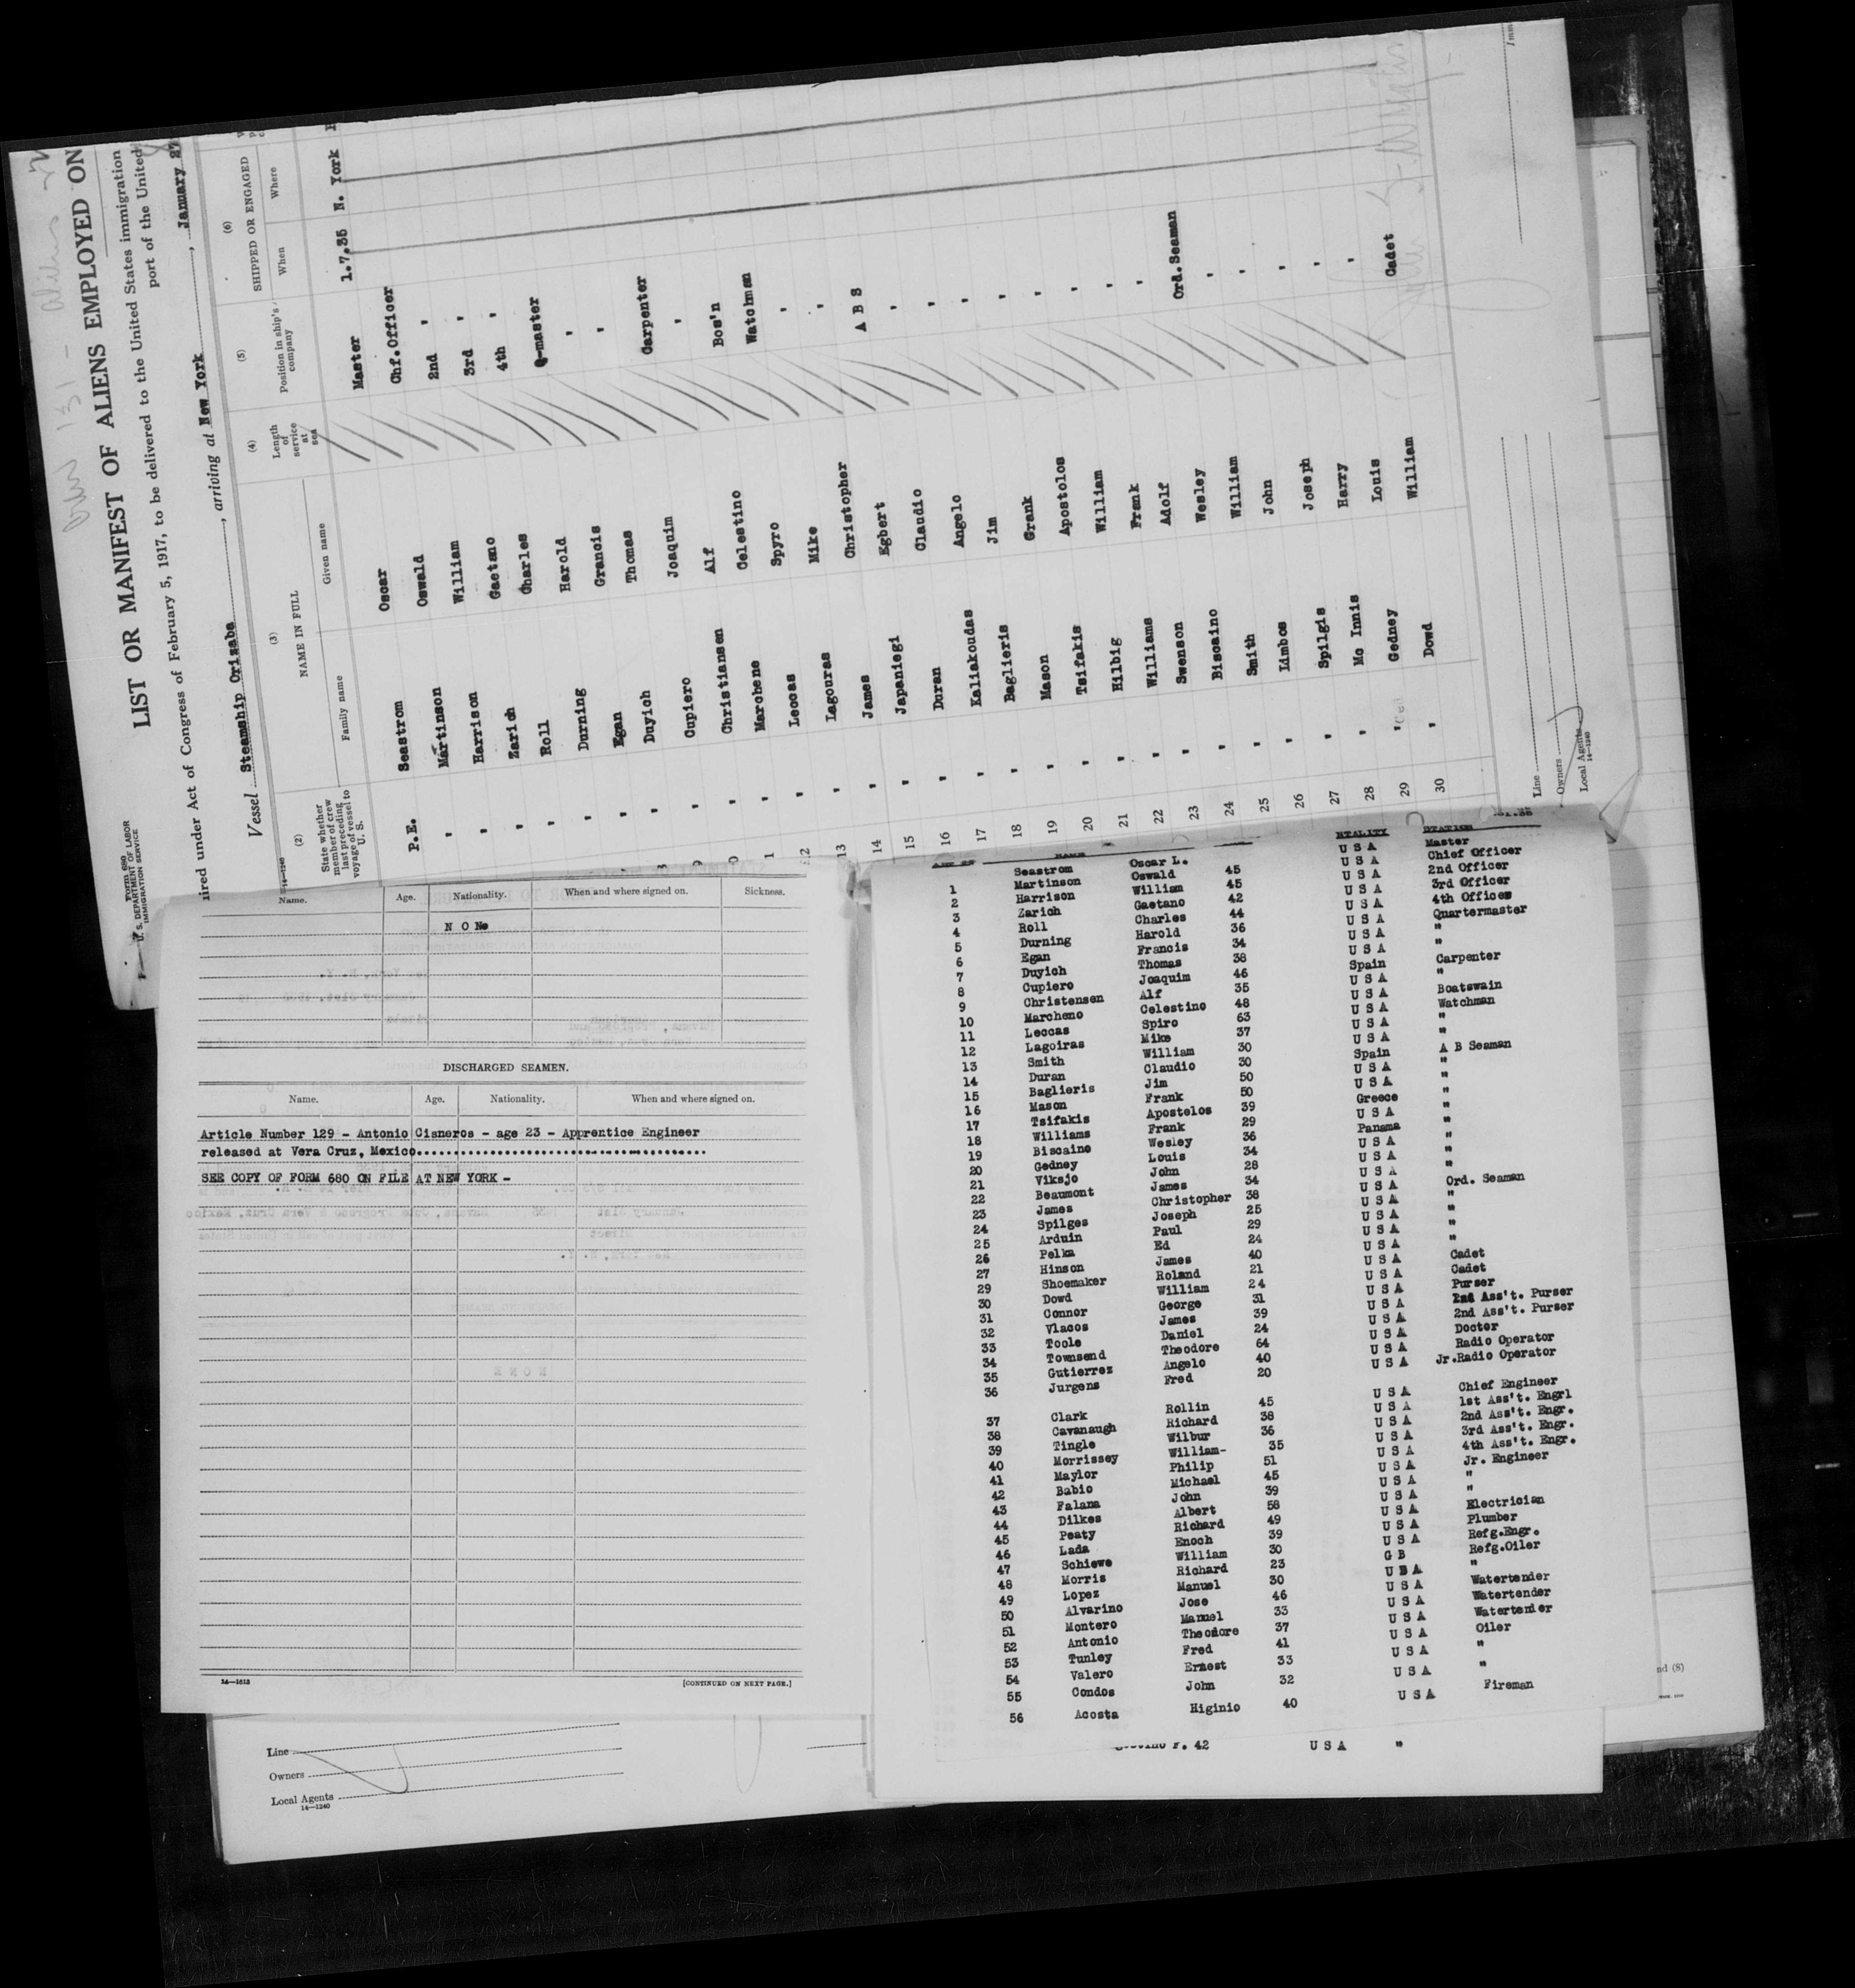 Form 680
U. S. DEPARTMENT OF LABOR
IMMIGRATION SERVICE
LIST OR MANIFEST OF ALIENS EMPLOYED ON
ired under Act of Congress of February 5, 1917, to be delivered to the United States immigration
port of the United
Vessel Steamship Orizaba, arriving at New York, January 27
14—1240
(2) (3) (4) (5) (6)
State whether member of crew last preceding voyage of vessel to U. S.
NAME IN FULL
Family name Given name
Length of service at sea
Position in ship's company
SHIPPED OR ENGAGED
When Where
P.E. Seastrom Oscar Master 1.7.35 N. York
" Martinson Oswald Chf.Officer
" Harrison William 2nd "
" Zarich Gaetano 3rd "
" Roll Charles 4th "
" Durning Harold Q-master
" Egan Grancis "
" Duyich Thomas "
" Cupiero Joaquim Carpenter
" Christiansen Alf "
" Marchene Celestino Bos'n
" Leccas Spyro Watchman
" Lagouras Mike "
" James Christopher "
" Japaniegi Egbert A B S
" Duran Claudio "
" Kaliakoudas Angelo "
" Baglieris Jim "
" Mason Grank "
" Tsifakis Apostolos "
" Hilbig William "
" Williams Frank "
" Swenson Adolf "
" Biscaino Wesley Ord.Seaman
" Smith William "
" Limbos John "
" Spilgis Joseph "
" Mc Innis Harry "
" Gedney Louis "
" Dowd William Cadet
12
13
14
15
16
17
18
19
20
21
22
23
24
25
26
27
28
29
30
Line
Owners
Local Agents
14—1240
Name. Age. Nationality. When and where signed on. Sickness.
N O Ne
DISCHARGED SEAMEN.
Name. Age. Nationality. When and where signed on.
Article Number 129 - Antonio Cisneros - age 23 - Apprentice Engineer
released at Vera Cruz, Mexico
SEE COPY OF FORM 680 ON FILE AT NEW YORK -
14—1613
[CONTINUED ON NEXT PAGE.]
Line
Owners
Local Agents
14—1240
NAME NTALITY STATION
Seastrom Oscar L. U S A Master
1 Martinson Oswald 45 U S A Chief Officer
2 Harrison William 45 U S A 2nd Officer
3 Zarich Gaetano 42 U S A 3rd Officer
4 Roll Charles 44 U S A 4th Officer
5 Durning Harold 36 U S A Quartermaster
6 Egan Francis 34 U S A "
7 Duyich Thomas 38 U S A "
8 Cupiero Joaquim 46 Spain Carpenter
9 Christensen Alf 35 U S A "
10 Marcheno Celestino 48 U S A Boatswain
11 Leccas Spiro 63 U S A Watchman
12 Lagoiras Mike 37 U S A "
13 Smith William 30 U S A "
14 Duran Claudio 30 Spain A B Seaman
15 Baglieris Jim 50 U S A "
16 Mason Frank 50 U S A "
17 Tsifakis Apostelos 39 Greece "
18 Williams Frank 29 U S A "
19 Biscaino Wesley 36 Panama "
20 Gedney Louis 34 U S A "
21 Viksjo John 28 U S A "
22 Beaumont James 34 U S A "
23 James Christopher 38 U S A Ord. Seaman
24 Spilges Joseph 25 U S A "
25 Arduin Paul 29 U S A "
26 Pelka Ed 24 U S A "
27 Hinson James 40 U S A "
29 Shoemaker Roland 21 U S A Cadet
30 Dowd William 24 U S A Cadet
31 Connor George 31 U S A Purser
32 Vlacos James 39 U S A 2nd Ass't. Purser
33 Toole Daniel 24 U S A 2nd Ass't. Purser
34 Townsend Theodore 64 U S A Doctor
35 Gutierrez Angelo 40 U S A Radio Operator
36 Jurgens Fred 20 U S A Jr.Radio Operator
37 Clark Rollin 45 U S A Chief Engineer
38 Cavanaugh Richard 38 U S A 1st Ass't. Engrl
39 Tingle Wilbur 36 U S A 2nd Ass't. Engr.
40 Morrissey William- 35 U S A 3rd Ass't. Engr.
41 Maylor Philip 51 U S A 4th Ass't. Engr.
42 Babio Michael 45 U S A Jr. Engineer
43 Falana John 39 U S A "
44 Dilkes Albert 58 U S A "
45 Peaty Richard 49 U S A Electrician
46 Lada Enoch 39 U S A Plumber
47 Schiewe William 30 U S A Refg.Engr.
48 Morris Richard 23 G B Refg.Oiler
49 Lopez Manuel 30 U S A "
50 Alvarino Jose 46 U S A Watertender
51 Montero Manuel 33 U S A Watertender
52 Antonio Theodore 37 U S A Watertender
53 Tunley Fred 41 U S A Oiler
54 Valero Ernest 33 U S A "
55 Condos John 32 U S A "
56 Acosta Higinio 40 U S A Fireman
F. 42 U S A "
nd (8)